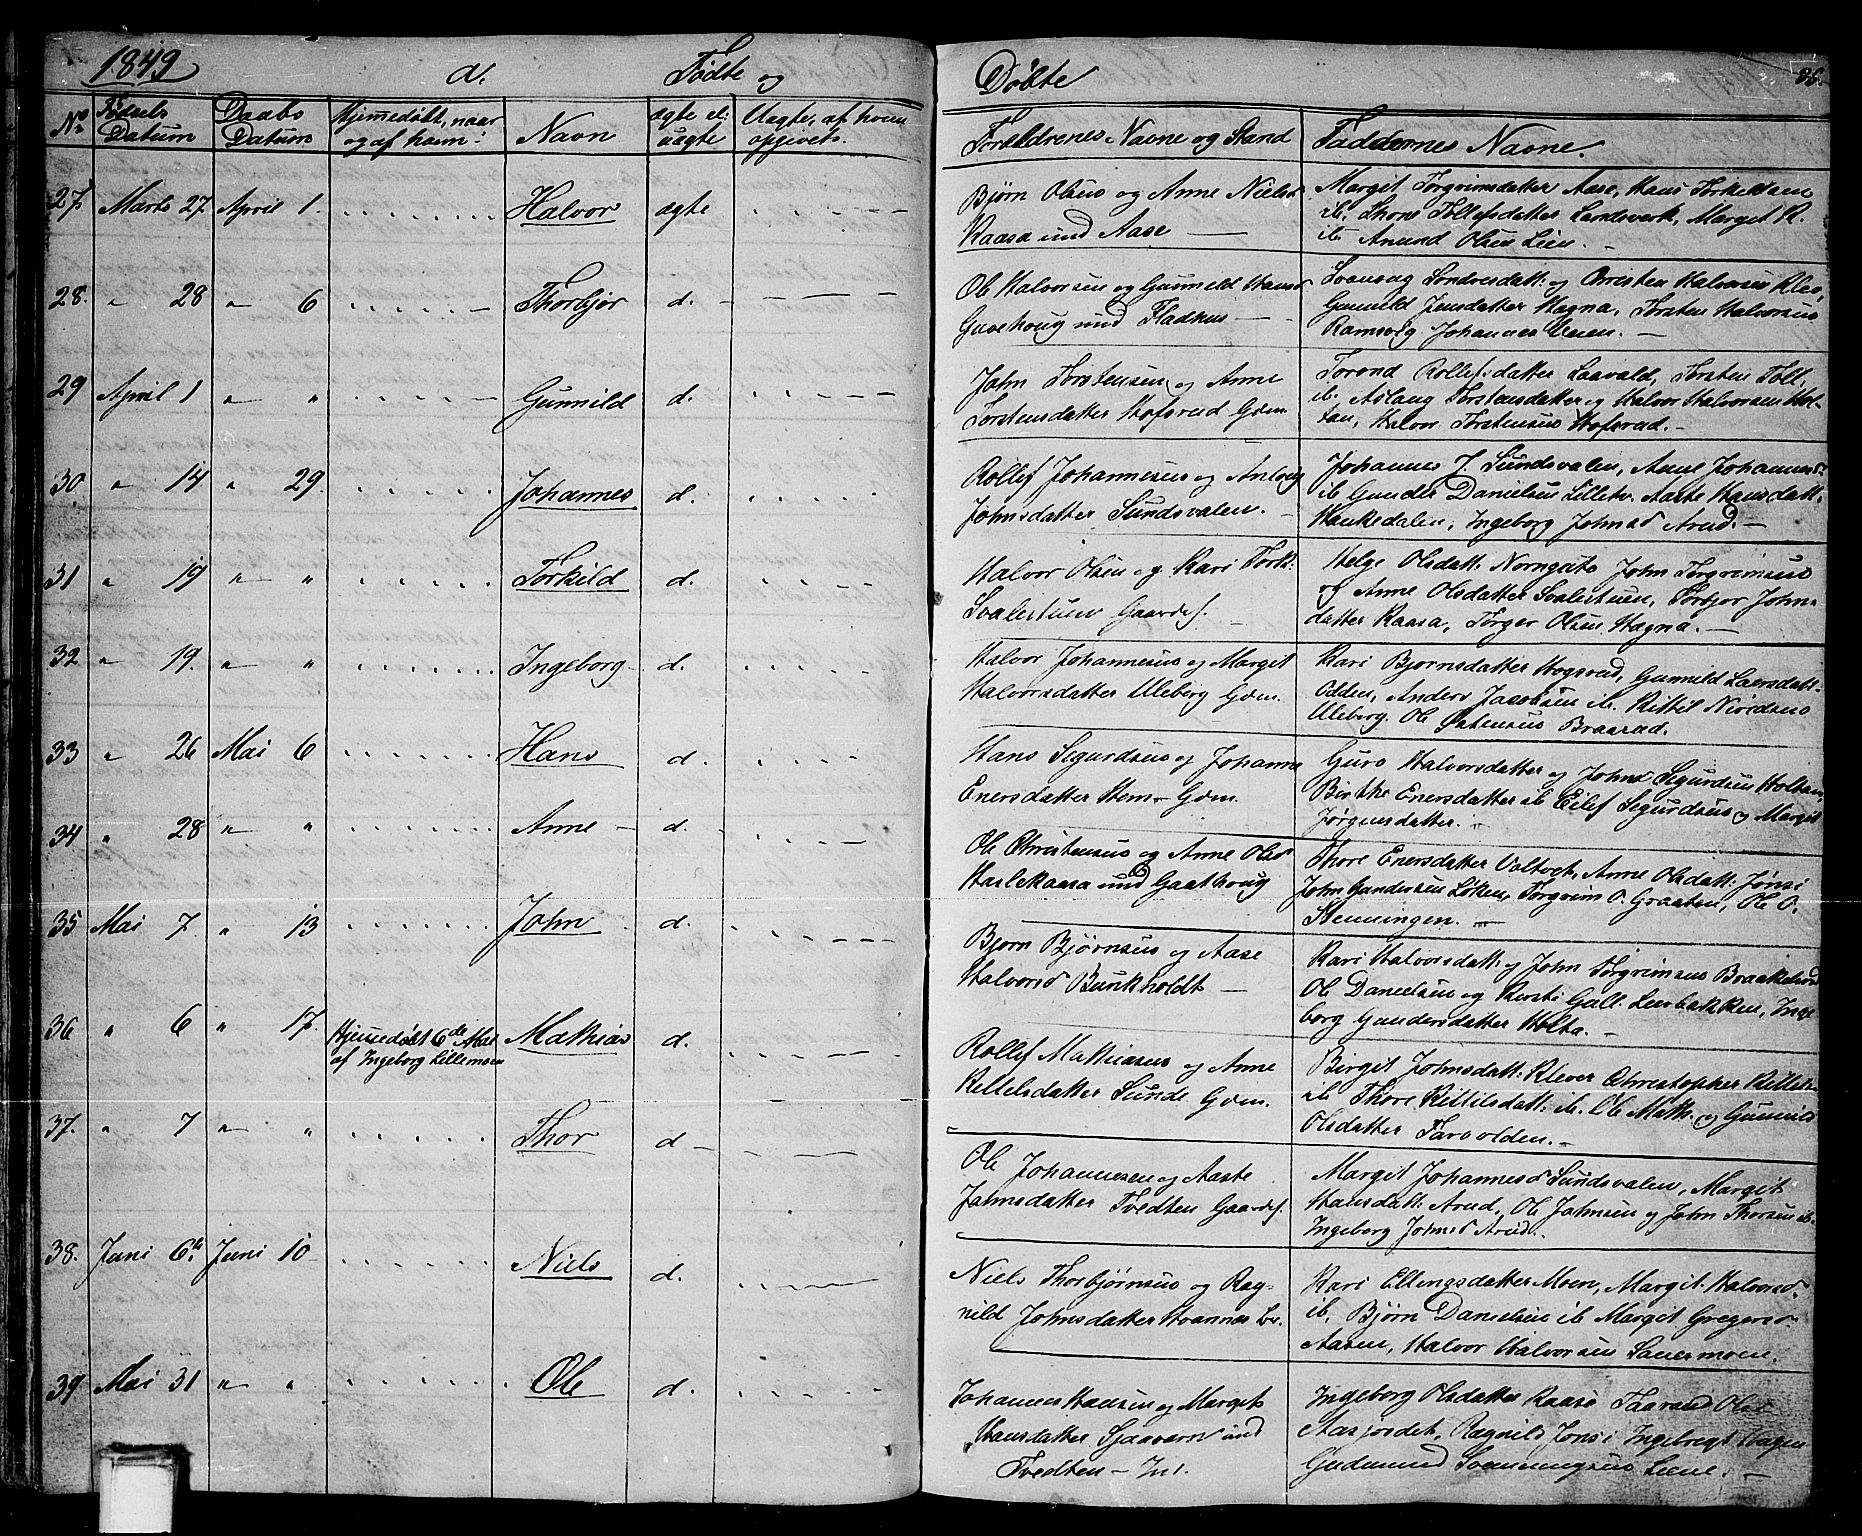 1849 d. Fødte og Døbte 85.
No. Fødsels Datum Daabs Datum Hjemmedøbt, naar og af hvem? Navn ægte el: uægte Uægte, af hvem opgivet. Forældrenes Navne og Stand Faddernes Navne.
27. Marts 27 April 1. Halvor ægte
Bjørn Olsen og Anne Nielsd
Kaasa und Aase
Margit Torgrimsdatter Aase, Hans Torkelsen
ib. Thone Tollefsdatter Landsverk, Margit K.
ib Anund Olsen Lien.
28. " 28 " 6 Thorbjør d.
Ole Halvorsen og Gunnild Hansd
Gavehoug und Fladhus
Svanaug Sondresdatt: og Christen Halvorsen Klev,
Gunnild Jensdatter Hagna, Torsten Halvorsen
Ramsvig Johannes Veien.
29 April 1 " " Gunnild d.
John Torstensen og Anne
Torstensdatter Hofsrud Gdm
Torond Rollefsdatter Laavald, Torsten Toll.
ib. Aslaug Torstensdatter og Halvor Halvorsen Hol-
tan, Halvor Torstensen Hofsrud.
30. " 14 " 29. Johannes d.
Rollef Johannesen og Anlaug
Johnsdatter Sundsvalen.
Johannes J. Sundsvalen, Anne Johannesd
ib Gunder Danielsen Lilletv. Aaste Hansdatt.
Haukedalen, Ingeborg Johnsd Arud.
31 " 19 " " Torkild d.
Halvor Olsen og Kari Tork:
Svalestuen Gaardef.
Helge Olsdatt: Norngate John Torgrimsen
og Anne Olsdatter Svalestuen, Torbjor Johns-
datter Kaasa, Torger Olsen Hagna.
32 " 19. " " Ingeborg d.
Halvor Johannesen og Margit
Halvorsdatter Uleberg Gdm.
Kari Bjørnsdatter Hogsrud, Gunnild Laersdatt.
Odden, Anders Jacobsen ib. Kittil Niridsen
Uleberg, Ole Ostensen Braarud.
33 " 26 Mai 6 Hans d.
Hans Sigurdsen og Johanne
Enersdatter Hem Gdm.
Guro Halvorsdatter og Johns Sigurdsen Holtan,
Birthe Enersdatter ib Eilef Sigurdsen og Margit
Jørgensdatter.
34 " 28 " " Anne d.
Ole Christensen og Anne Olsd
Harlekaasa und Gaathoug
Thore Enersdatter Valtvet, Anne Olsdatt: Jønsi
John Gundersen Løken, Torgrim O. Graaten, Ole O.
Stenningen.
35 Mai 7. " 13 John d.
Bjørn Bjørnsen og Aase
Halvorsd Bunkholdt
Kari Halvorsdatt: og John Torgrimsen Braakelsrud
Ole Danielsen og Kersti Gall. Leerbakken, Inge
borg Gundersdatter Holta.
36 " 6 " 17. Hjemmedøbt 6de Mai
af Ingeborg Lillemoen Mathias d.
Rollef Mathiasen og Anne
Kittelsdatter Sunde Gdm.
Birgit Johnsdatt: Klever Christopher Kittels
ib Thore Kittilsdatt: ib. Ole Math. og Gunnild
Olsdatter Taraolden.
37. " 7 " " Thor d
Ole Johannesen og Aaste
Johnsdatter Tvedten Gaardef.
Margit Johannesd Sundsvalen, Margit
Hansdatt: Arud, Ole Johnsen og John Thorsen ib.
Ingeborg Johnsd Arud.
38. Juni 6te Juni 10 Niels d.
Niels Thorbjørnsen og Rag-
nild Johnsdatter Hvannes
Kari Ellingsdatter Moen, Margit Halvorsd
ib. Bjørn Danielsen ib Margit Gregersd
Aasen, Halvor Halvorsen Sauermoen.
39 Mai 31 " " Ole d.
Johannes Hansen og Margit
Hansdatter Sjaavern und
Tvedten - Ind.
Ingeborg Olsdatter Kaase Taarand Olsd
Aasjordet, Ragnild Jonsi Ingebregt Hagen
Gudmund Svenningsen Liene.